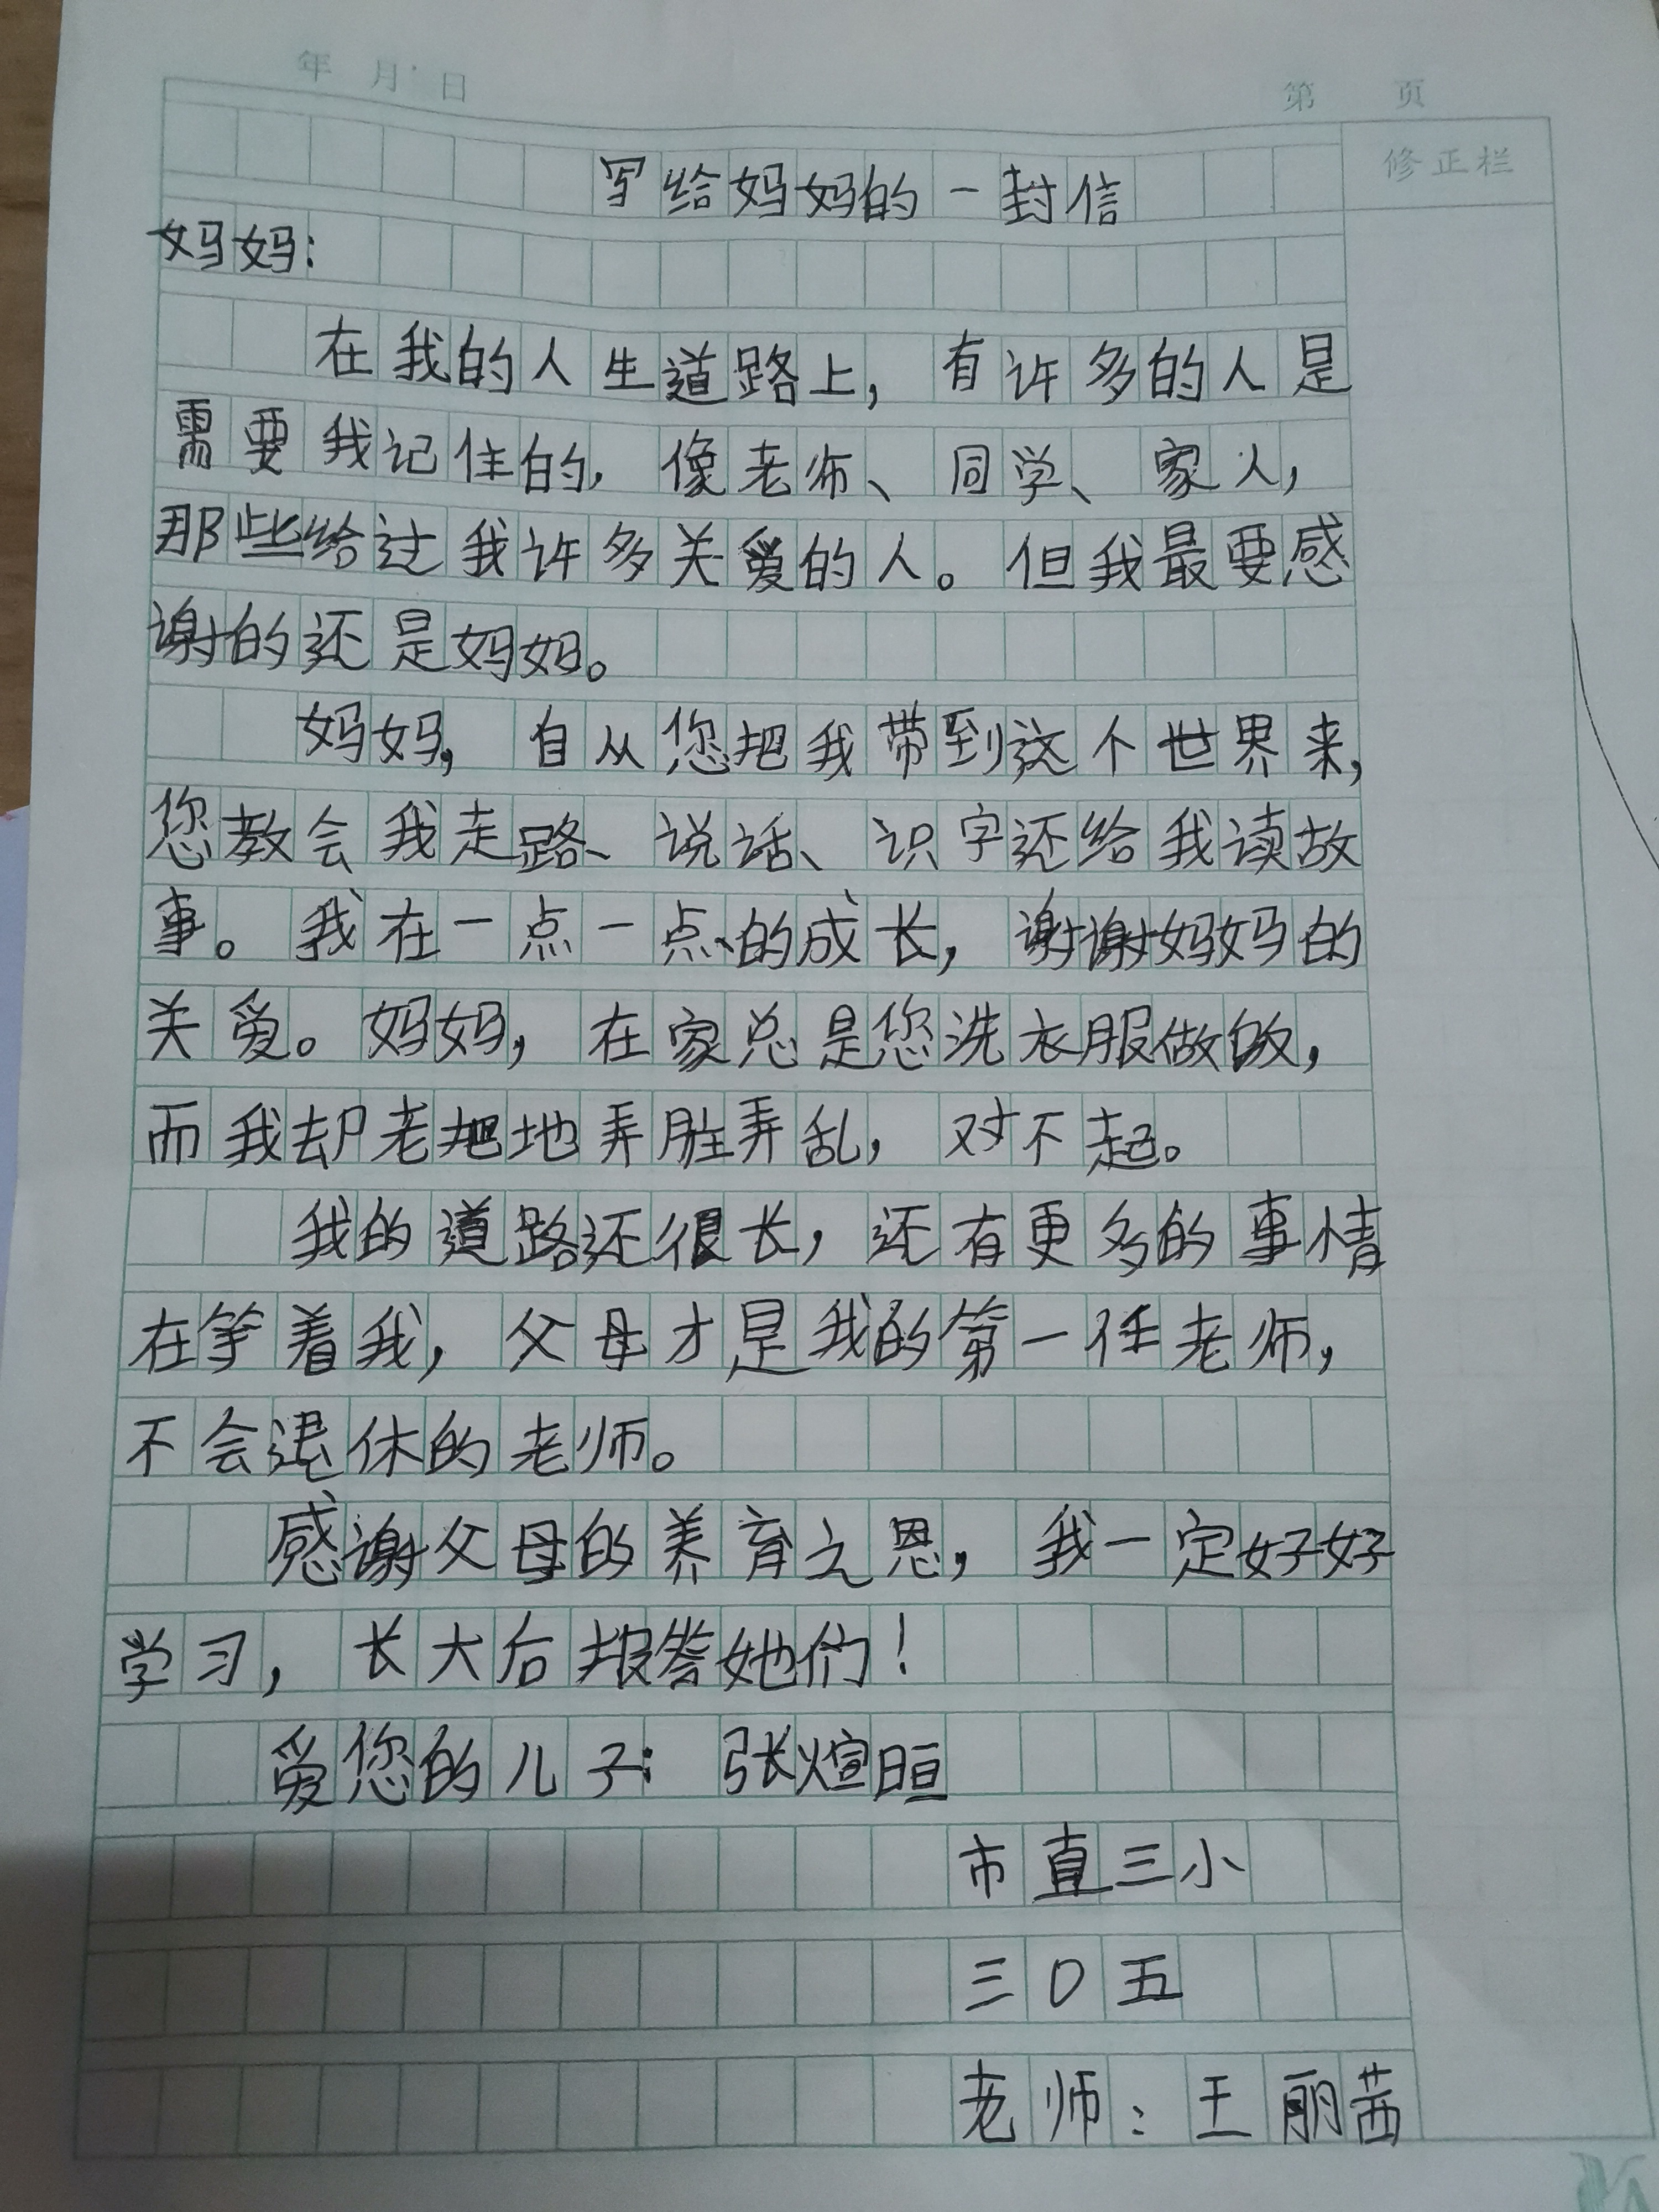 年 月 日
第 页
修正栏
写给妈妈的一封信
妈妈:
在我的人生道路上，有许多的人是
需要我记住的，像老师、同学、家人，
那些给过我许多关爱的人。但我最要感
谢的还是妈妈。
妈妈，自从您把我带到这个世界来，
您教会我走路、说话、识字还给我读故
事。我在一点一点的成长，谢谢妈妈的
关爱。妈妈，在家总是您洗衣服做饭，
而我却老把地弄脏弄乱，对不起。
我的道路还很长，还有更多的事情
在等着我，父母才是我的第一任老师，
不会退休的老师。
感谢父母的养育之恩，我一定好好
学习，长大后报答她们！
爱您的儿子：张煊晅
市直三小
三0五
老师：王丽茜